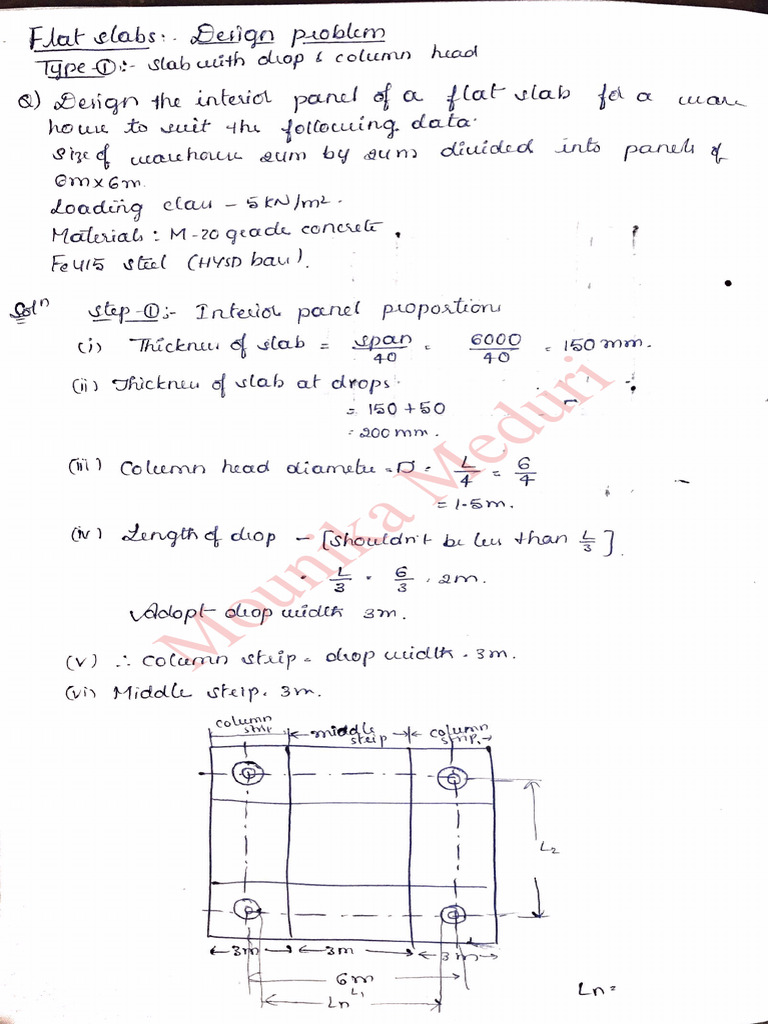 Flat slabs:- Design problem
Type-①:- slab with drop & column head
Q) Design the interior panel of a flat slab for a ware
house to suit the following data.
Size of warehouse 24m by 24m divided into panels of
6m x 6m.
Loading class - 5 kN/m².
Materials: M-20 grade concrete
Fe415 steel (HYSD bars).
Solⁿ step-①:- Interior panel proportions
(i) Thickness of slab = span/40 = 6000/40 = 150 mm.
(ii) Thickness of slab at drops
= 150 + 50
= 200 mm.
(iii) Column head diameter = D = L/4 = 6/4
= 1.5m.
(iv) Length of drop - [shouldn't be less than L/3].
= L/3 = 6/3 = 2m.
Adopt drop width 3m.
(v) ∴ column strip = drop width = 3m.
(vi) Middle strip = 3m.
column strip middle strip column strip
L2
3m 3m 3m
6m
L1
Ln
Ln =
Mounika Meduri